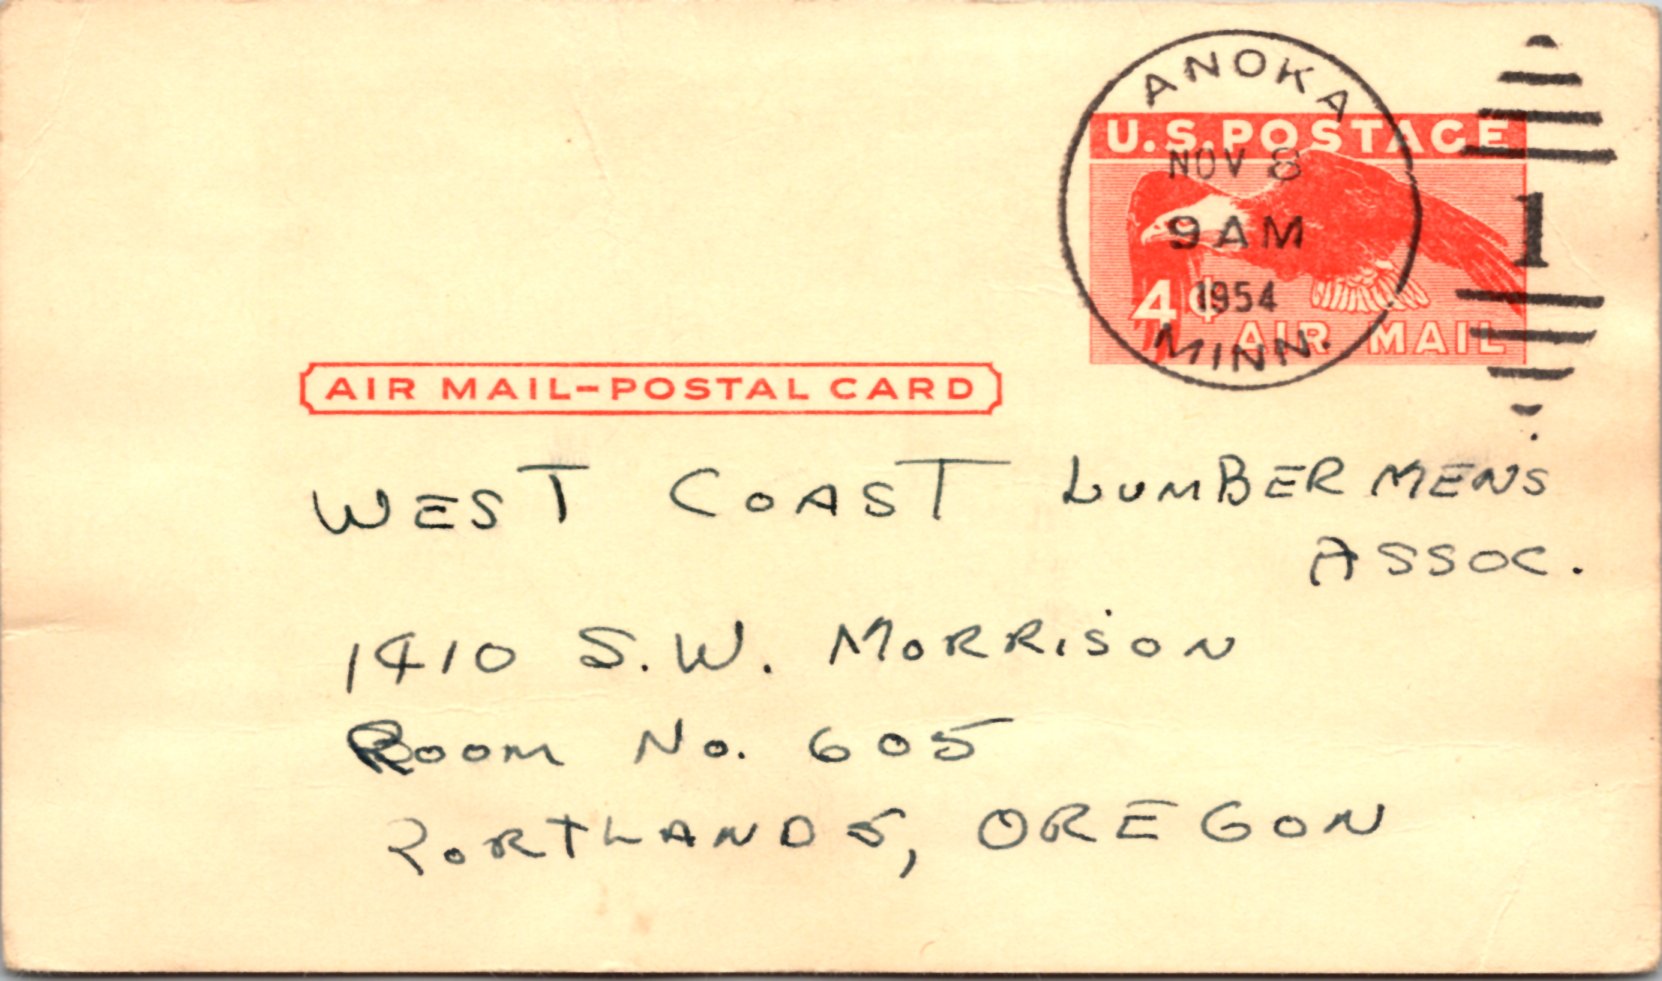 ANOKA
U.S. POSTAGE
NOV 8
9 AM
1954
1
4¢
AIR MAIL
MINN.
AIR MAIL-POSTAL CARD
WEST COAST LUMBERMENS
ASSOC.
1410 S.W. MORRISON
ROOM No. 605
PORTLAND 5, OREGON